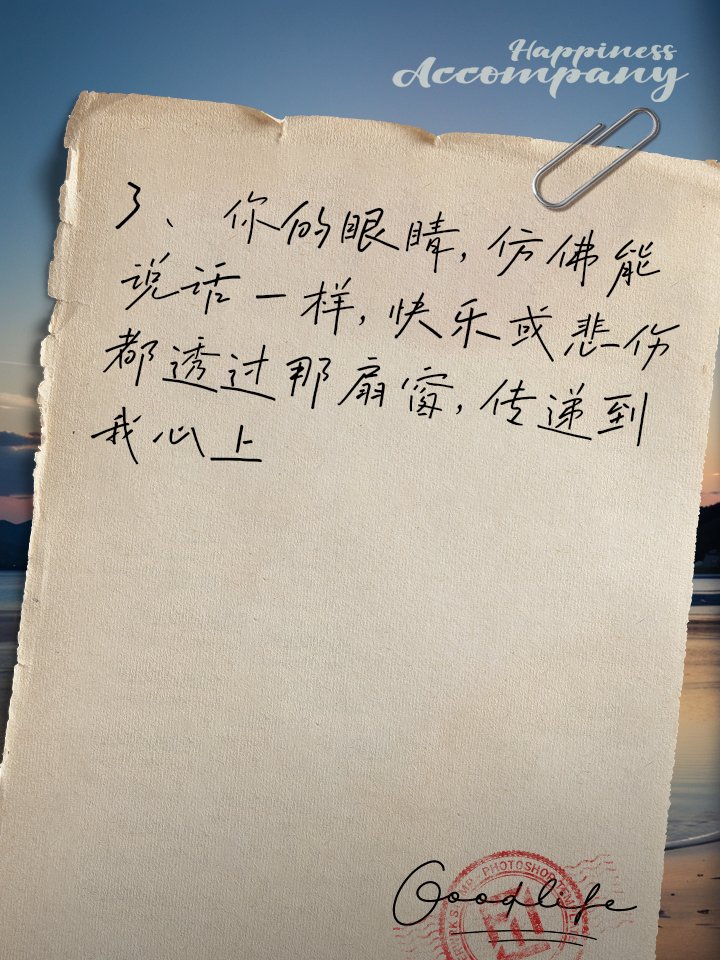 Happiness
Accompany
3、你的眼睛,仿佛能
说话一样,快乐或悲伤
都透过那扇窗,传递到
我心上
Goodlife